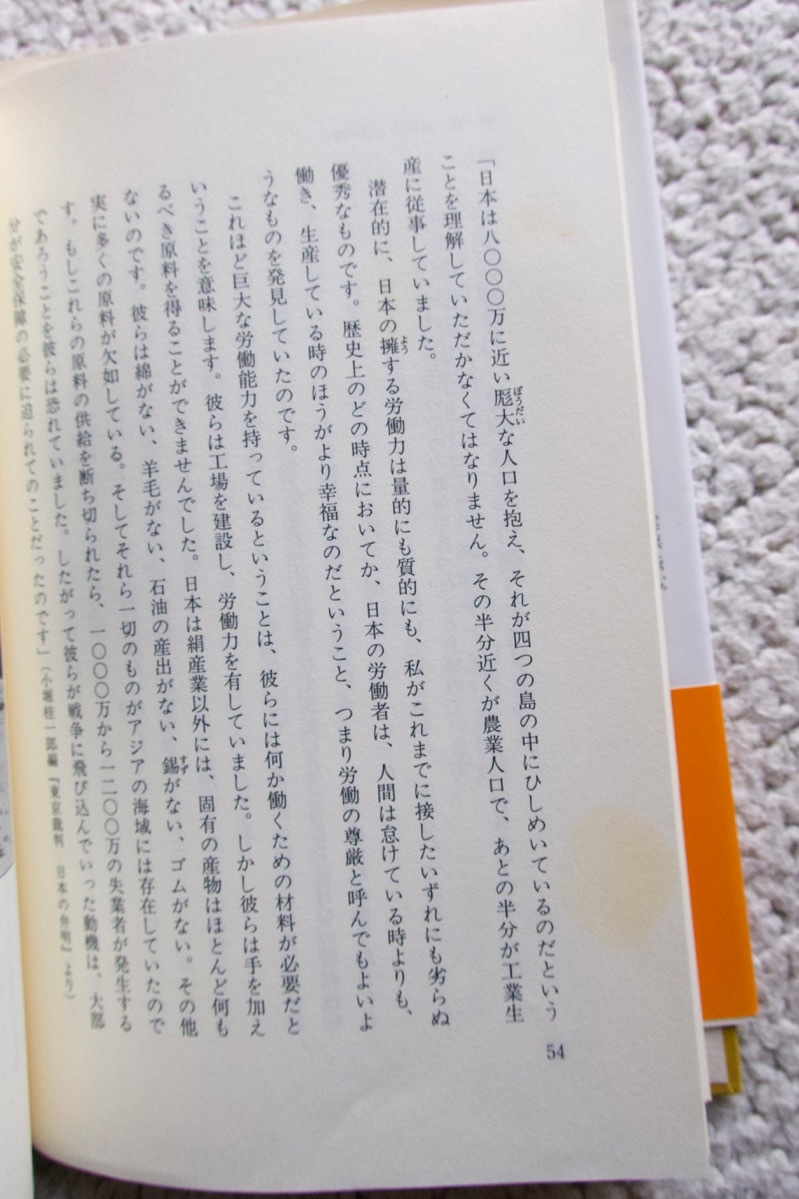 「日本は八〇〇〇万に近い厖大な人口を抱え、それが四つの島の中にひしめいているのだという
ことを理解していただかなくてはなりません。その半分近くが農業人口で、あとの半分が工業生
産に従事していました。
潜在的に、日本の擁する労働力は量的にも質的にも、私がこれまでに接したいずれにも劣らぬ
優秀なものです。歴史上のどの時点においてか、日本の労働者は、人間は怠けている時よりも、
働き、生産している時のほうがより幸福なのだということ、つまり労働の尊厳と呼んでもよいよ
うなものを発見していたのです。
これほど巨大な労働能力を持っているということは、彼らには何か働くための材料が必要だと
いうことを意味します。彼らは工場を建設し、労働力を有していました。しかし彼らは手を加え
るべき原料を得ることができませんでした。日本は絹産業以外には、固有の産物はほとんど何も
ないのです。彼らは綿がない、羊毛がない、石油の産出がない、錫がない、ゴムがない。その他
実に多くの原料が欠如している。そしてそれら一切のものがアジアの海域には存在していたので
す。もしこれらの原料の供給を断ち切られたら、一〇〇〇万から一二〇〇万の失業者が発生する
であろうことを彼らは恐れていました。したがって彼らが戦争に飛び込んでいった動機は、大部
分が安全保障の必要に迫られてのことだったのです」（小堀桂一郎編『東京裁判　日本の弁明』より）
54